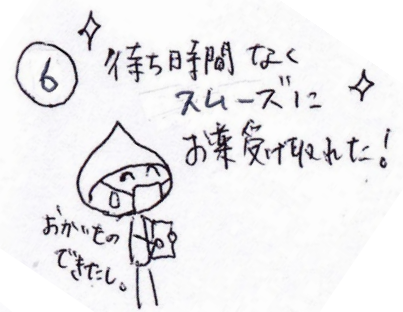 ⑥
待ち時間なく
スムーズに
お薬受け取れた!
おかいもの
できたし。